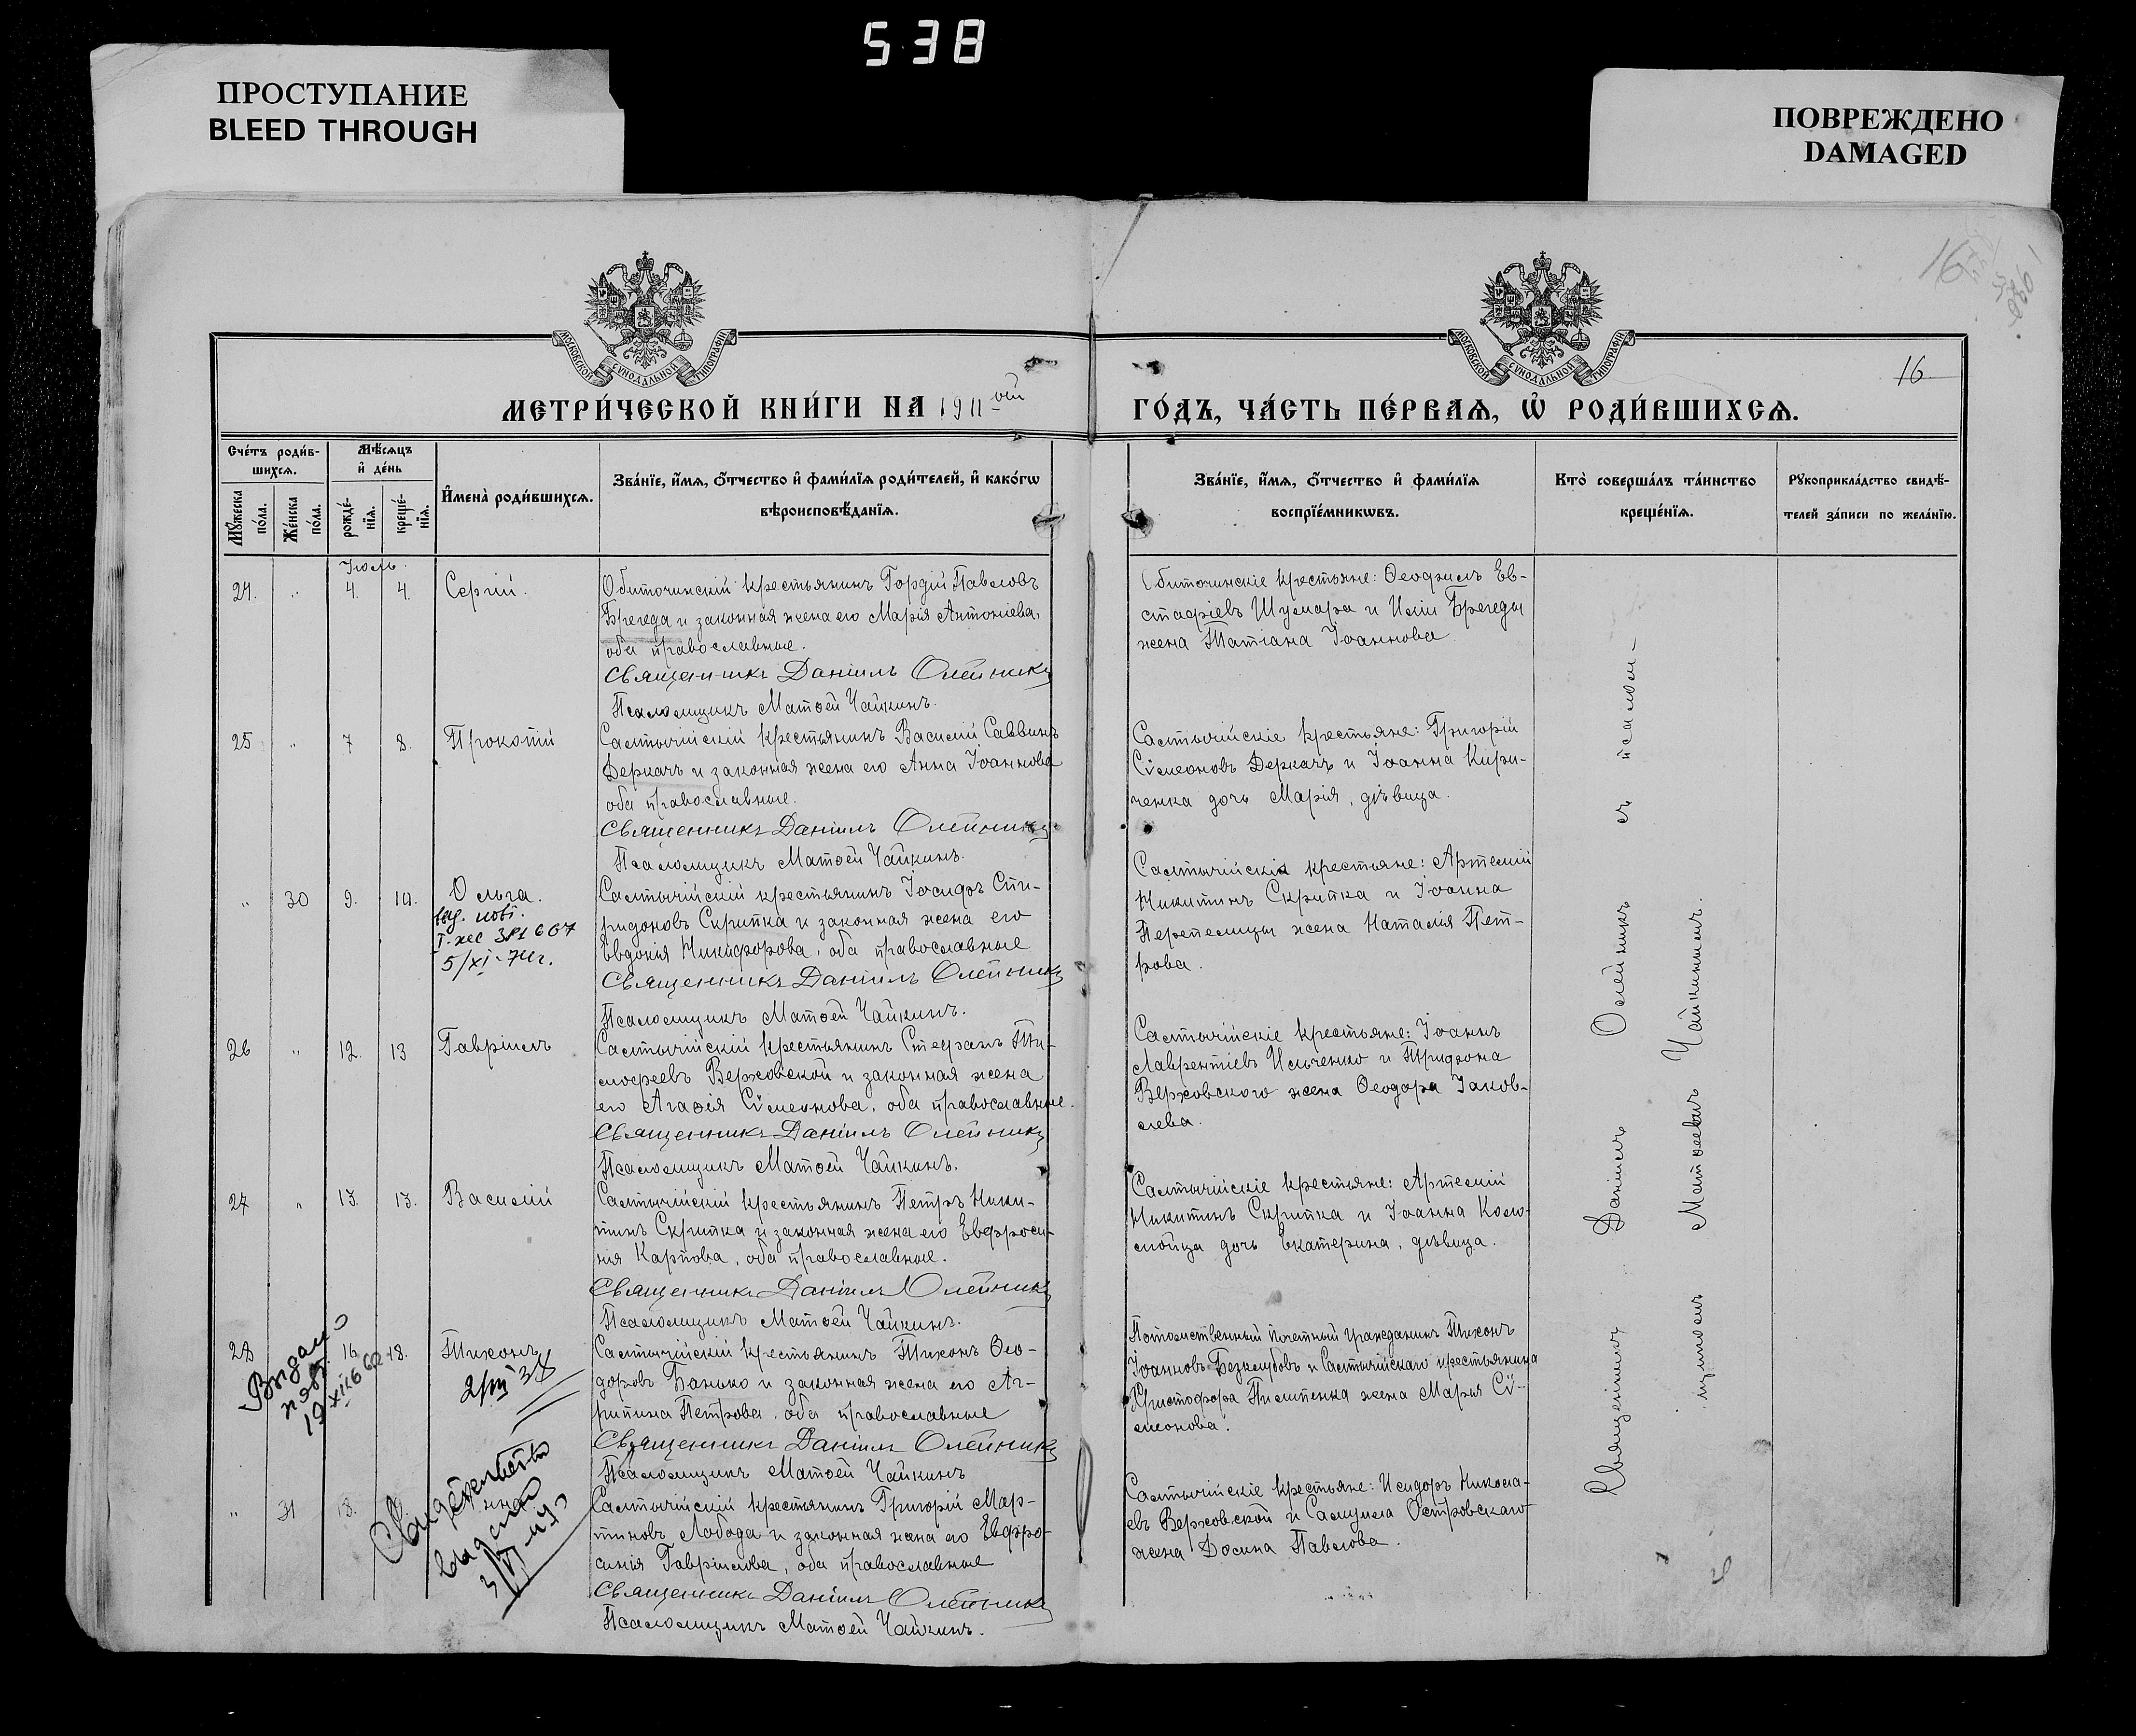 538
ПРОСТУПАНИЕ
BLEED THROUGH
ПОВРЕЖДЕНО
DAMAGED
16
16
МОСКОВСКОЙ СѴНОДАЛЬНОЙ ТИПОГРАФІИ
МОСКОВСКОЙ СѴНОДАЛЬНОЙ ТИПОГРАФІИ
МЕТРИ́ЧЕСКОЙ КНИ́ГИ НА 1911 ый
ГО́ДЪ, ЧА́СТЬ ПЕ́РВАѦ, Ѡ҆ РОДИ́ВШИХСѦ.
Сче́тъ роди́в-
шихсѧ.
Мꙋ́жеска по́ла.
Же́нска по́ла.
Мѣ́сѧцъ
и҆ де́нь
рожде́-
нїѧ.
креще́-
нїѧ.
И҆мена̀ роди́вшихсѧ.
Зва́нїе, и҆́мѧ, ѻ҆́тчество и҆ фами́лїѧ роди́телей, и҆ како́гѡ
вѣроисповѣ́данїѧ.
Зва́нїе, и҆́мѧ, ѻ҆́тчество и҆ фами́лїѧ
воспрїе́мникѡвъ.
Кто̀ соверша́лъ та́инство
креще́нїѧ.
Рꙋкоприкла́дство свидѣ́-
телей за́писи по жела́нїю.
Іюль.
24. " 4. 4. Сергій.
Обиточинскій крестьянинъ Гордій Павловъ
Брегеда и законная жена его Марія Антоніева,
оба православные.
Священникъ Даніилъ Олейникъ
Псаломщикъ Матѳей Чайкинъ.
Обиточинскіе крестьяне: Ѳеофилъ Ев-
стафіевъ Шумара и Иліи Брегеды
жена Татіана Іоаннова.
25 " 7 8. Прокопій
Салтычійскій крестьянинъ Василій Саввинъ
Деркачъ и законная жена его Анна Іоаннова
оба православные.
Священникъ Даніилъ Олейникъ
Псаломщикъ Матѳей Чайкинъ.
Салтычійскіе крестьяне: Григорій
Сѵмеоновъ Деркачъ и Іоанна Кири-
ченка дочь Марія, дѣвица.
" 30 9. 10. Ольга.
5/XI-74г.
Салтычійскій крестьянинъ Іосифъ Спи-
ридоновъ Скрипка и законная жена его
Евдокія Никифорова, оба православные
Священникъ Даніилъ Олейникъ
Псаломщикъ Матѳей Чайкинъ.
Салтычійскіе крестьяне: Артемій
Никитинъ Скрипка и Іоанна
Перепелицы жена Наталія Пет-
рова.
26 " 12. 13 Гавріилъ
Салтычійскій крестьянинъ Стефанъ Ти-
моѳеевъ Верховской и законная жена
его Агаѳія Сѵмеонова, оба православные.
Священникъ Даніилъ Олейникъ
Псаломщикъ Матѳей Чайкинъ.
Салтычійскіе крестьяне: Іоаннъ
Лаврентіевъ Ильченко и Трифона
Верховского жена Ѳеодора Іаков-
лева.
27 " 13. 13. Василій
Салтычійскій крестьянинъ Петръ Ники-
тинъ Скрипка и законная жена его Евфроси-
нія Карпова, оба православные.
Священникъ Даніилъ Олейникъ
Псаломщикъ Матѳей Чайкинъ.
Салтычійскіе крестьяне: Артемій
Никитинъ Скрипка и Іоанна Коло-
мойца дочь Екатерина, дѣвица.
28 16. 18. Тихонъ
Салтычійскій крестьянинъ Тихонъ Ѳео-
доровъ Банько и законная жена его Аг-
рипина Петрова, оба православные
Священникъ Даніилъ Олейникъ
Псаломщикъ Матѳей Чайкинъ
Потомственный почетный гражданинъ Тихонъ
Іоанновъ Безклубовъ и Салтычійскаго крестьянина
Христофора Пилипенка жена Марія Сѵ-
меонова.
" 31 18.
Свидѣтельство
выдано
Салтычійскій крестьянинъ Григорій Мар-
тиновъ Лобода и законная жена его Евфро-
синія Гавріилова, оба православные
Священникъ Даніилъ Олейникъ
Псаломщикъ Матѳей Чайкинъ.
Салтычійскіе крестьяне: Исидоръ Никола-
евъ Верховской и Самуила Островскаго
жена Досина Павлова.
Священникъ Даніилъ Олейникъ съ псалом-
щикомъ Матѳеемъ Чайкинымъ.